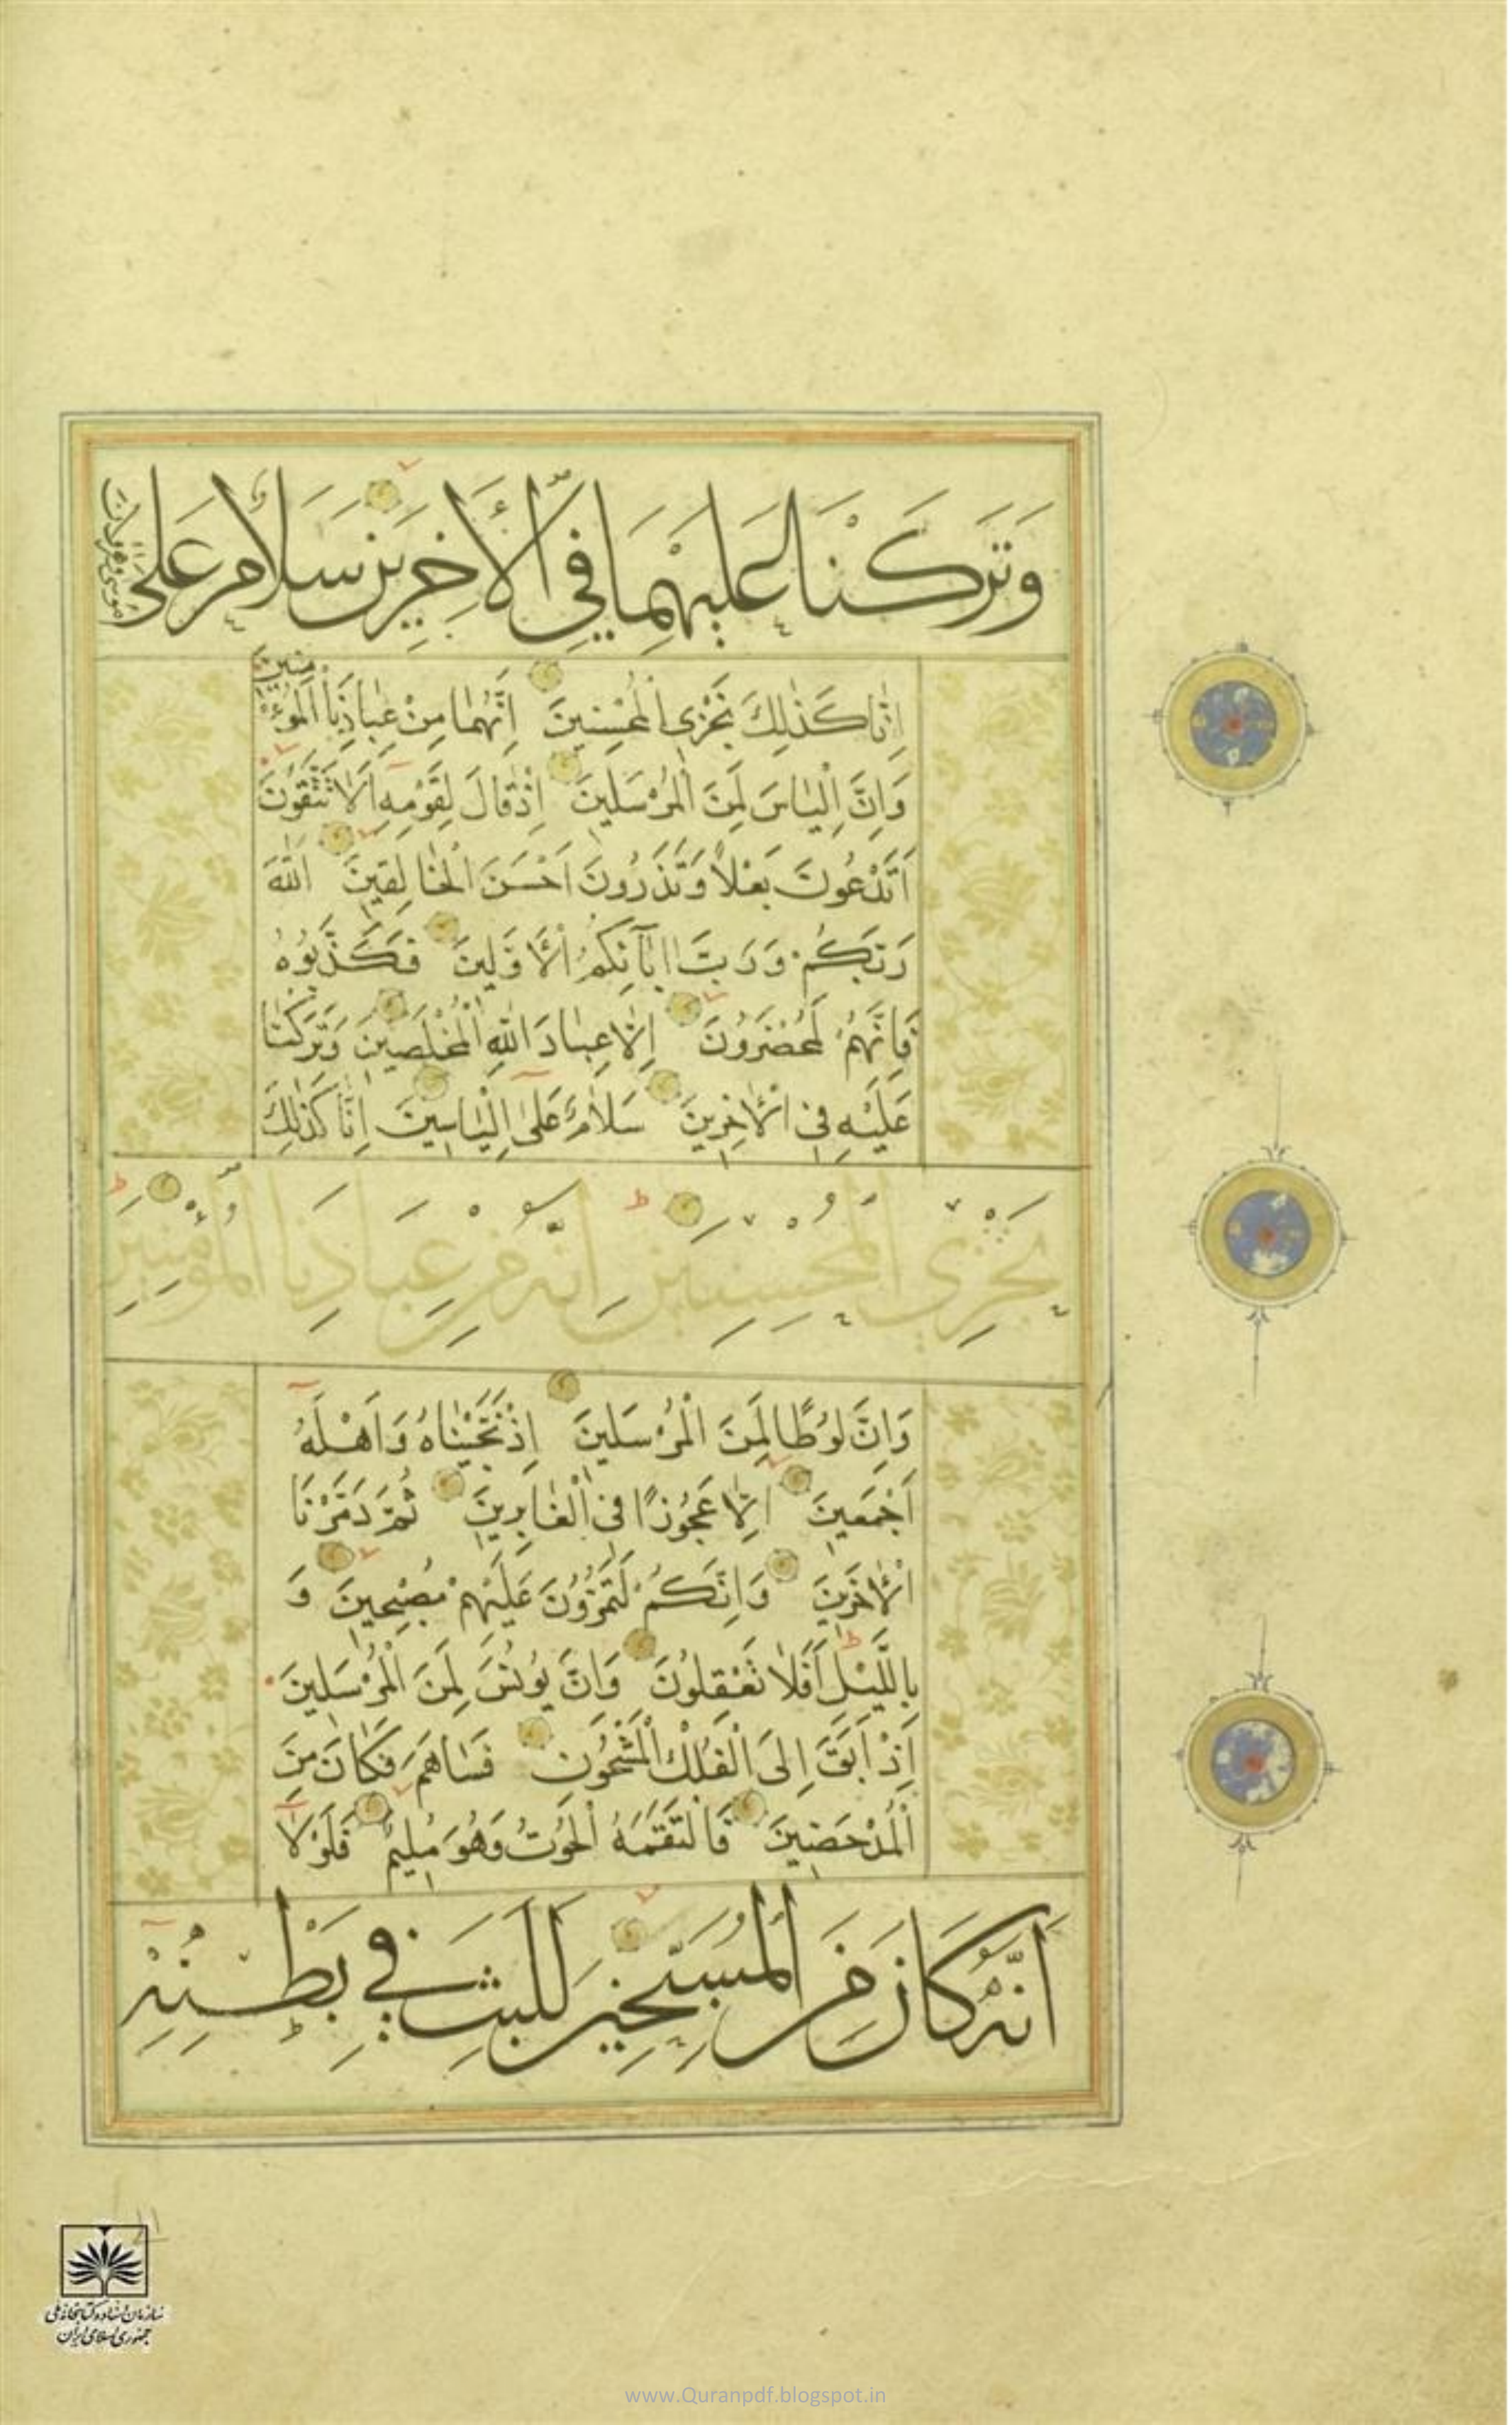 وَتَرَكْنَا عَلَيْهِمَا فِي الْأَخِرِينَ سَلَامٌ عَلَى
مُوسَى وَهَرُونَ
اِنَّا كَذٰلِكَ نَجْزِي الْمُحْسِنِينَ اِنَّهُمَا مِنْ عِبَادِنَا الْمُؤْ
مِنِينَ
وَاِنَّ اِلْيَاسَ لَمِنَ الْمُرْسَلِينَ اِذْ قَالَ لِقَوْمِهِ اَلَا تَتَّقُونَ
اَتَدْعُونَ بَعْلًا وَتَذَرُونَ اَحْسَنَ الْخَالِقِينَ اللّٰهَ
رَبَّكُمْ وَرَبَّ اٰبَآئِكُمُ الْاَوَّلِينَ فَكَذَّبُوهُ
فَاِنَّهُمْ لَمُحْضَرُونَ اِلَّا عِبَادَ اللّٰهِ الْمُخْلَصِينَ وَتَرَكْنَا
عَلَيْهِ فِي الْاٰخِرِينَ سَلَامٌ عَلٰى اِلْيَاسِينَ اِنَّا كَذٰلِكَ
نَجْزِي الْمُحْسِنِينَ اِنَّهُ مِنْ عِبَادِنَا الْمُؤْمِنِينَ
وَاِنَّ لُوطًا لَمِنَ الْمُرْسَلِينَ اِذْ نَجَّيْنَاهُ وَاَهْلَهُ
اَجْمَعِينَ اِلَّا عَجُوزًا فِي الْغَابِرِينَ ثُمَّ دَمَّرْنَا
الْاٰخَرِينَ وَاِنَّكُمْ لَتَمُرُّونَ عَلَيْهِمْ مُصْبِحِينَ وَ
بِاللَّيْلِ اَفَلَا تَعْقِلُونَ وَاِنَّ يُونُسَ لَمِنَ الْمُرْسَلِينَ
اِذْ اَبَقَ اِلَى الْفُلْكِ الْمَشْحُونِ فَسَاهَمَ فَكَانَ مِنَ
الْمُدْحَضِينَ فَالْتَقَمَهُ الْحُوتُ وَهُوَ مُلِيمٌ فَلَوْلَا
اَنَّهُ كَانَ مِنَ الْمُسَبِّحِينَ لَلَبِثَ فِي بَطْنِهِ
سازمان اسناد و کتابخانه ملی
جمهوری اسلامی ایران
www.Quranpdf.blogspot.in